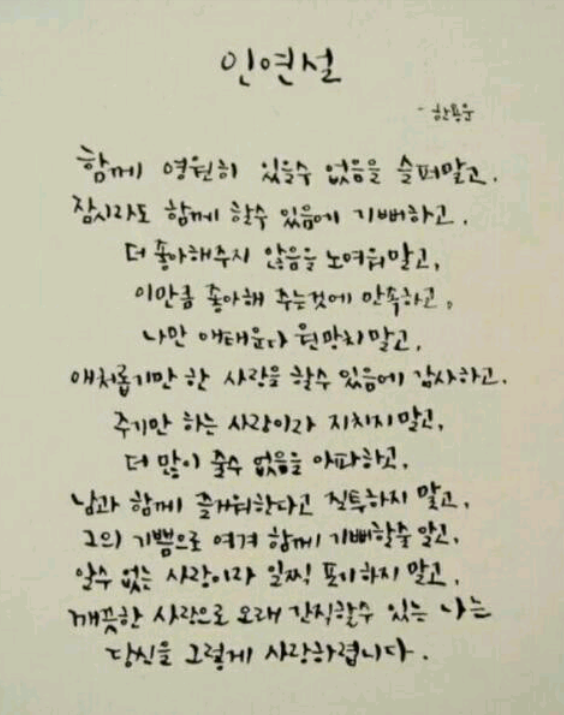 인연설
- 한용운
함께 영원히 있을수 없음을 슬퍼말고.
잠시라도 함께 할수 있음에 기뻐하고.
더 좋아해주지 않음을 노여워말고,
이만큼 좋아해 주는것에 만족하고.
나만 애태운다 원망치말고,
애처롭기만 한 사랑을 할수 있음에 감사하고.
주기만 하는 사랑이라 지치지말고,
더 많이 줄수 없음을 아파하고,
남과 함께 즐거워한다고 질투하지 말고,
그의 기쁨으로 여겨 함께 기뻐할줄 알고,
알수 없는 사랑이라 일찍 포기하지 말고,
깨끗한 사랑으로 오래 간직할수 있는 나는
당신을 그렇게 사랑하렵니다.